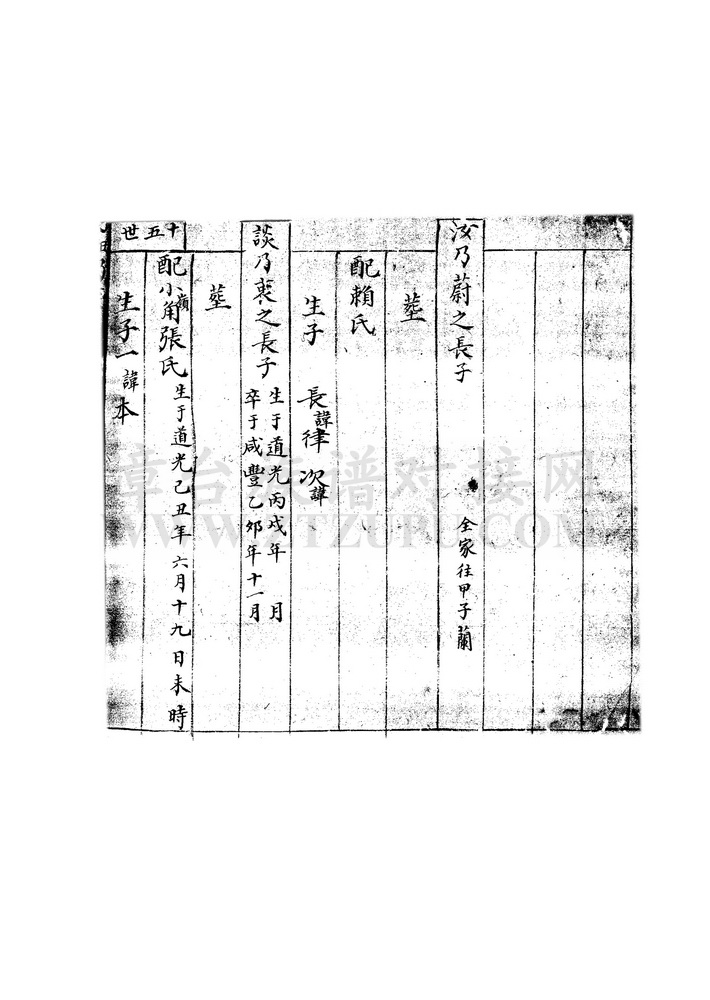 汝乃蔚之長子 全家往甲子蘭
塟
配賴氏
生子 長諱律 次諱
談乃衷之長子 生于道光丙戌年 月
卒于咸豐乙卯年十一月
塟
十五世
配小嶺角張氏 生于道光己丑年六月十九日未時
生子一諱本
章台族谱对接网
WWW.ZTZUPU.COM